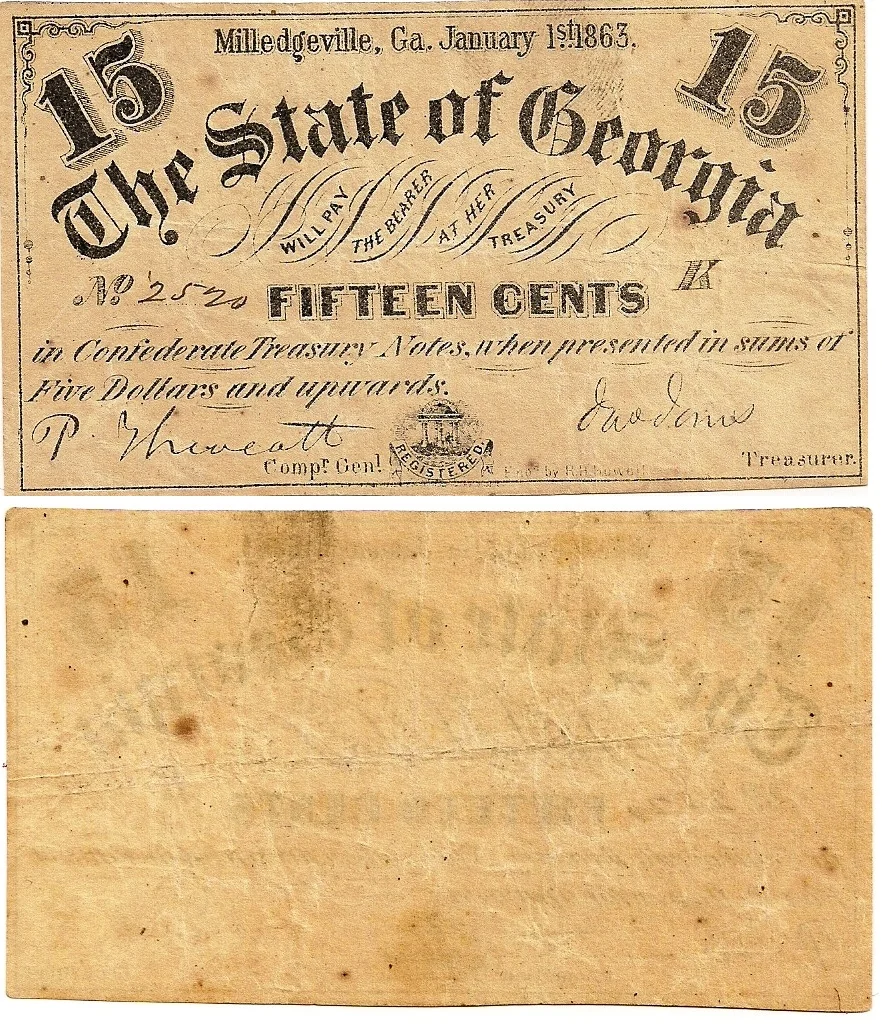 15 Milledgeville, Ga. January 1st 1863. 15
The State of Georgia
WILL PAY THE BEARER AT HER TREASURY
No 2520 FIFTEEN CENTS K
in Confederate Treasury Notes, when presented in sums of
Five Dollars and upwards.
P. Thweatt Jno Jones
Compr Genl REGISTERED. by R.H. Howell Treasurer.